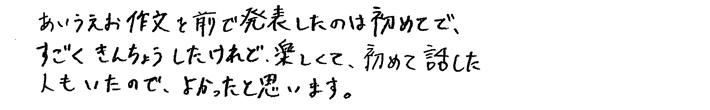 あいうえお作文を前で発表したのは初めてで、
すごくきんちょうしたけれど、楽しくて、初めて話した
人もいたので、よかったと思います。